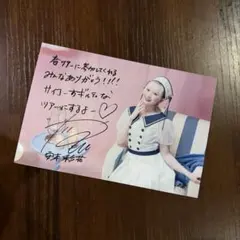 春ツアーに参加してくれる
みんなありがとう!!!!
サイコー ギルティな
ツアーにするよー♡